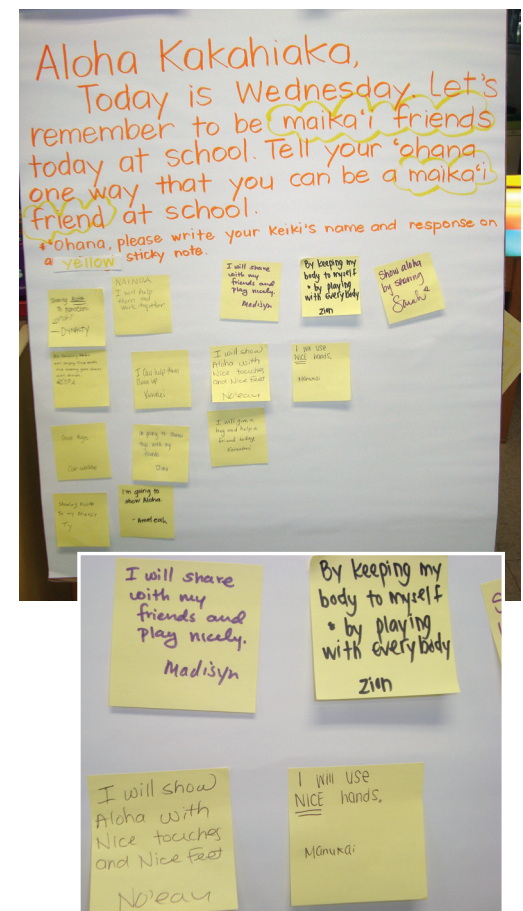 Aloha Kakahiaka,
Today is Wednesday. Let's
remember to be maika'i friends
today at school. Tell your 'ohana
one way that you can be a maika'i
friend at school.
*'Ohana, please write your keiki's name and response on
a yellow sticky note.
Sharing Aloha
to
— DYNASTY
NAINOA
I will help
and
work together
I will share
with my
friends and
play nicely.
Madisyn
By keeping my
body to myself
• by playing
with everybody
zion
Show aloha
by sharing
Sarah
I can help
clean up
I will show
Aloha with
Nice touches
and Nice Feet
No'eau
I will use
NICE hands.
Manukai
give hugs
going to share
with my
friends
I will give a
hug and help a
friend today
Sharing Aloha
to my friends
Ty
I'm going to
show Aloha
I will share
with my
friends and
play nicely.
Madisyn
By keeping my
body to myself
• by playing
with everybody
zion
S
I will show
Aloha with
Nice touches
and Nice Feet
No'eau
I will use
NICE hands.
Manukai